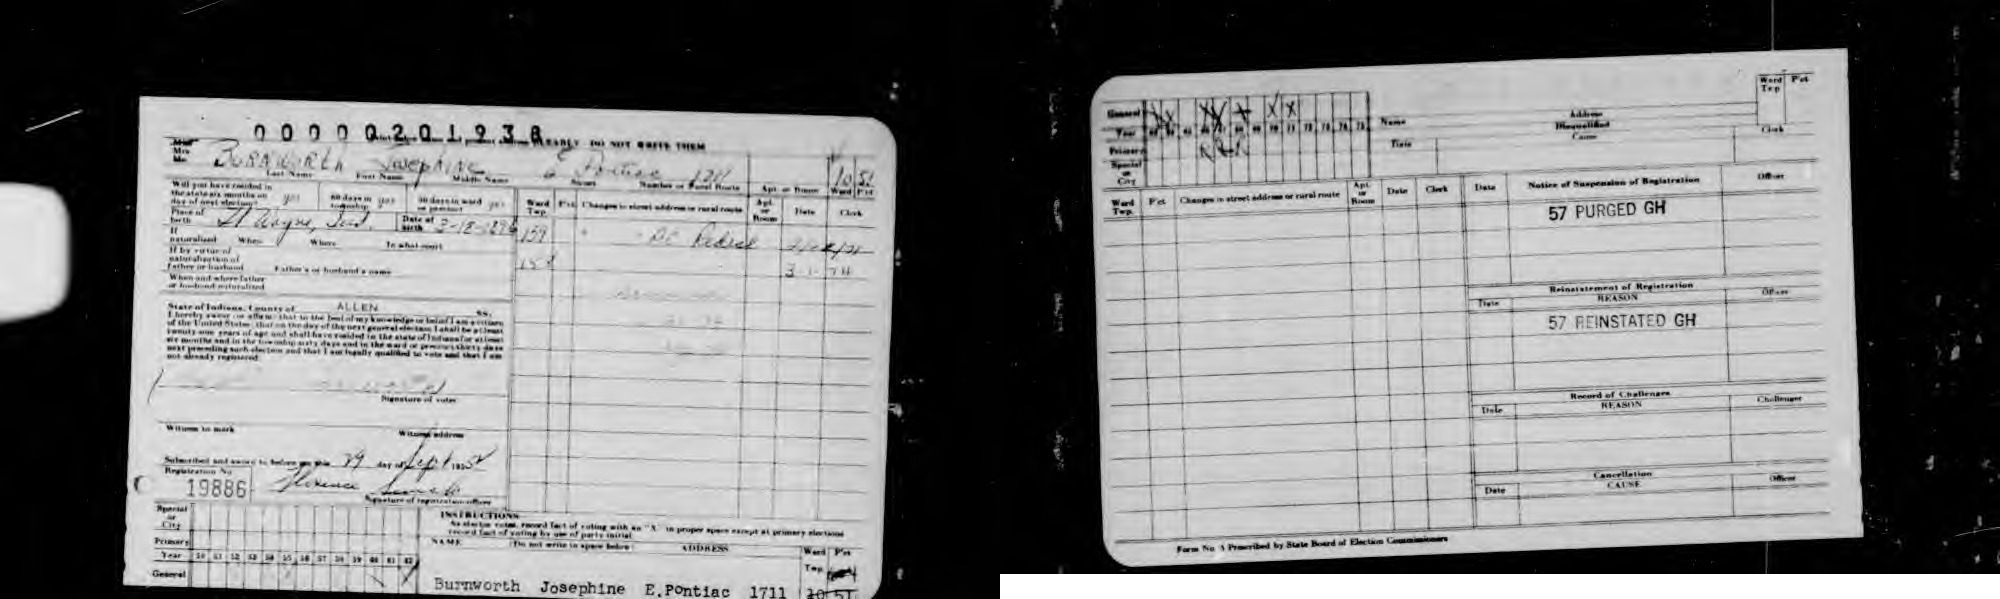 00000201938
EARLY DO NOT WRITE THEM
Mrs
BURNWORTH Josephine E Pontiac 1711 10 51
Last Name First Name Middle Name Street Number or Rural Route Apt. or Room Ward P'ct
Will you have resided in the state six months on day of next election? yes 60 days in township yes 30 days in ward or precinct yes
Ward Twp. P'ct Changes in street address or rural route Apt. or Room Date Clerk
Place of birth Ft Wayne, Ind. Date of birth 3-18-1896
159
If naturalized When Where In what court
158 3-1-74
If by virtue of naturalization of father or husband Father's or husband's name
When and where father or husband naturalized
State of Indiana, County of ALLEN SS.
I hereby swear or affirm that to the best of my knowledge or belief I am a citizen
of the United States, that on the day of the next general election I shall be at least
twenty-one years of age and shall have resided in the state of Indiana for at least
six months and in the township sixty days and in the ward or precinct thirty days
next preceding such election and that I am legally qualified to vote and that I am
not already registered.
Signature of voter
Witness to mark Witness address
Subscribed and sworn to before me this 29 day of Sept 195
Registration No.
19886 Florence
Signature of registration officer
Special or City
Primary
Year 50 51 52 53 54 55 56 57 58 59 60 61 62
General
INSTRUCTIONS
As elector votes, record fact of voting with an "X" in proper space except at primary elections
record fact of voting by use of party initial.
NAME (Do not write in space below) ADDRESS Ward Twp. P'ct
Burnworth Josephine E.Pontiac 1711 10 51
General X X X X X X
Year 68 69 70 71 72 73 74 75
Primary R R N
Special or City
Name Address
Ward Twp P'ct
Disqualified
Date Cause Clerk
Ward Twp. P'ct Changes in street address or rural route Apt. or Room Date Clerk
Date Notice of Suspension of Registration Officer
57 PURGED GH
Reinstatement of Registration
Date REASON Officer
57 REINSTATED GH
Record of Challenges
Date REASON Challenger
Cancellation
Date CAUSE Officer
Form No. 3 Prescribed by State Board of Election Commissioners